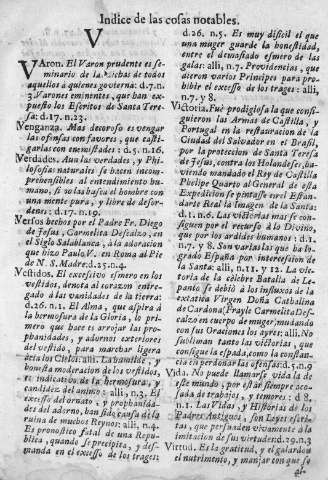 Indice de las cosas notables.
V
VAron. El Varon prudente es seminario de las dichas de todos
aquellos à quienes govierna: d.7.n.
3. Varones eminentes, que han expuesto los Escritos de Santa Teresa: d.17.n.23.
Venganza. Mas decoroso es vengar
las ofensas con favores, que castigarlas con enemistades: d.5.n.16.
Verdades. Aun las verdades, y Philosofias naturales se hacen incomprehensibles al entendimiento humano, si no habitas al hombre con
una mente pura, y libre de desordenes: d.17.n.19.
Versos hechos por el Padre Fr. Diego
de Jesus, Carmelita Descalzo, en
el Siglo Salablanca, à la adoracion
que hizo Paulo V. en Roma al Pie
de N. S. Madre: d.25.n.4.
Vestidos. El excessivo esmero en los
vestidos, denota al corazon entregado à las vanidades de la tierra:
d.26. n.1. El Alma, que aspira à
la hermosura de la Gloria, lo primero que hace es arrojar las prophanidades, y adornos exteriores
del vestido, para marchar ligera
à los Cielos: alli. La humilde, y
honesta moderacion de los vestidos,
es indicativo de la hermosura, y
candidez del animo: alli, n.3. El
excesso del ornato, y prophanidades del adorno, han sido causa de la
ruina de muchos Reynos: alli, n.4.
Es pronostico fatal de una Republica, quando se precipita, y desmanda en el excesso de los trages:
d.26. n.5. Es muy dificil el que
una muger guarde la honestidad,
entre el demasiado esmero de las
galas: alli, n.7. Providencias, que
dieron varios Principes para prohibir el excesso de los trages: alli,
n.7. y 8.
Victoria. Fue prodigiosa la que consiguieron las Armas de Castilla, y
Portugal en la restauracion de la
Ciudad del Salvador en el Brasil,
por la proteccion de Santa Teresa
de Jesus, contra los Holandeses, haviendo mandado el Rey de Castilla
Phelipe Quarto al General de esta
Expedicion se pintasse en el Estandarte Real la Imagen de la Santa:
d.1. n.6. Las victorias mas se consiguen por el recurso à lo Divino,
que por los ardides humanos: d.1.
n.7. y 8. Son varias las que ha logrado España por intercession de
la Santa: alli, n.11. y 12. La victoria de la célebre Batalla de Lepanto se debiò à los influxos de la
extatica Virgen Doña Cathalina
de Cardona, Frayle Carmelita Descalzo en cuerpo de muger, mundando
con sus Oraciones los ayres: alli. No
subliman tanto las victorias, que
consigue la espada, como la constancia en perdonar ofensas: d.5.n.9
Vida. No puede llamarse vida la de
este mundo, por estàr siempre acosada de trabajos, y temores: d 8.
n.1. Las Vidas, y Historias de los
Padres Antiguos, son Leyes escritas, que persuaden vivamente à la
imitacion de sus virtudes: d.29.n.3
Virtud. Es la gratitud, y el galardon
el nutrimento, y manjar con que se